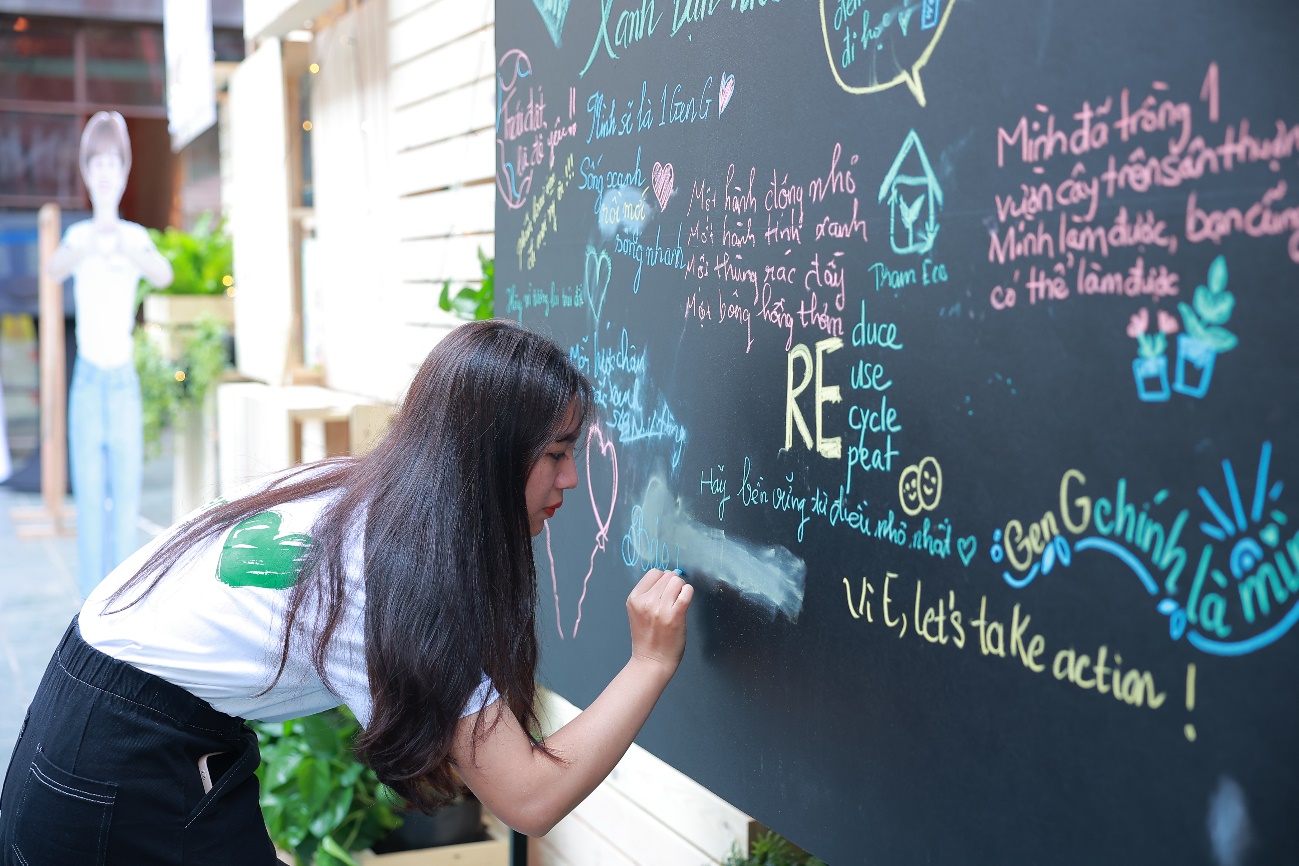 Xanh bạn nh
đi họ
Trái đất
là để yêu!!
Mình sẽ là 1 Gen G
Sống xanh
rồi mới
sống nhanh
Một hành động nhỏ
Một hành tinh xanh
Một thùng rác đầy
Một bông hồng thắm
Trạm Eco
Mình đã trồng 1
vườn cây trên sân thượn
Mình làm được, bạn cũng
có thể làm được
RE
duce
use
cycle
peat
Hãy bền vững từ điều nhỏ nhất
Gen G chính là mìn
Vì E, let's take action!